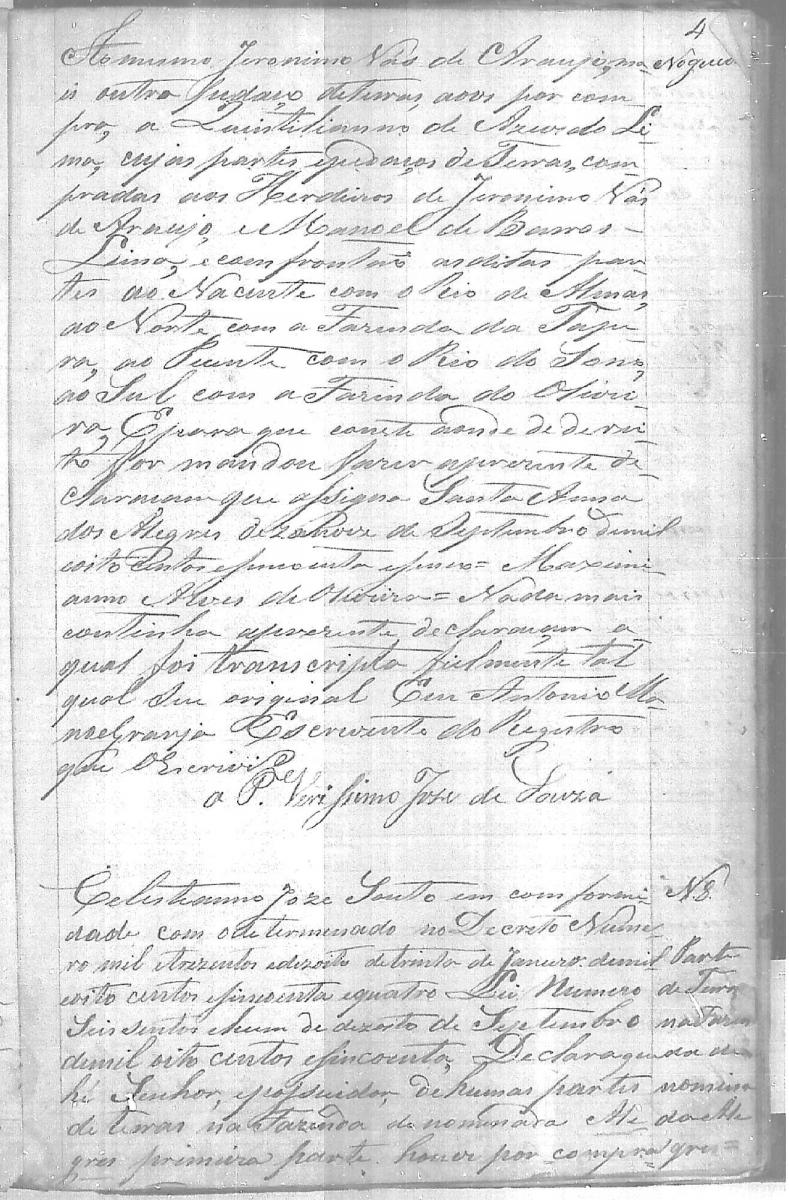 4
Ao mesmo Jeronimo Vas de Araujo, ma-
is outro pedaço de terras, aove por com
pra, a Quintilianno de Azevedo Li-
ma, cujas partes epedaços de Terras, com
pradas aos Herdeiros de Jeronimo Vas
de Araujo, e Manoel de Barros-
Lima, e comfrontão asditas par-
tes ao Nacente com o Rio de Almas,
ao Norte com a Fazenda da Tape-
ra, ao Puente com o Rio do Sono,
ao Sul com a Fazenda do Olivei-
ra, Epara que conste aonde de derei-
to for mandou fazer aprezente de-
claraçam que assigna Santa Anna
dos Alegres dezanove de Septembro demil
oito centos esincoenta esinco = Maximi-
anno Alves de Oliveira = Nada mais
continha aprezente declaraçam a
qual foi transcripta fielmente tal
qual seu original Eeu Antonio
Granja Escrevente do Registro
que OEscrivi
o P.e Verissimo Joze de Souza
Celestianno Joze Souto em comformi-
dade com odetermenado no Decreto Nume-
ro mil etrezentos edezoito detrinta de Janeiro demil
oito centos esincoenta equatro Lei Numero
Seis sentos ehum de dezoito de Septembro
demil oito centos esincoenta, Declara que
hé Senhor, epossuidor, dehumas partes
de terras na Fazenda denominada Ale-
gres primeira parte houve por compra
N 8.
Parte
de Terra
na Fazen
da de
nomina
da Ale
gres=